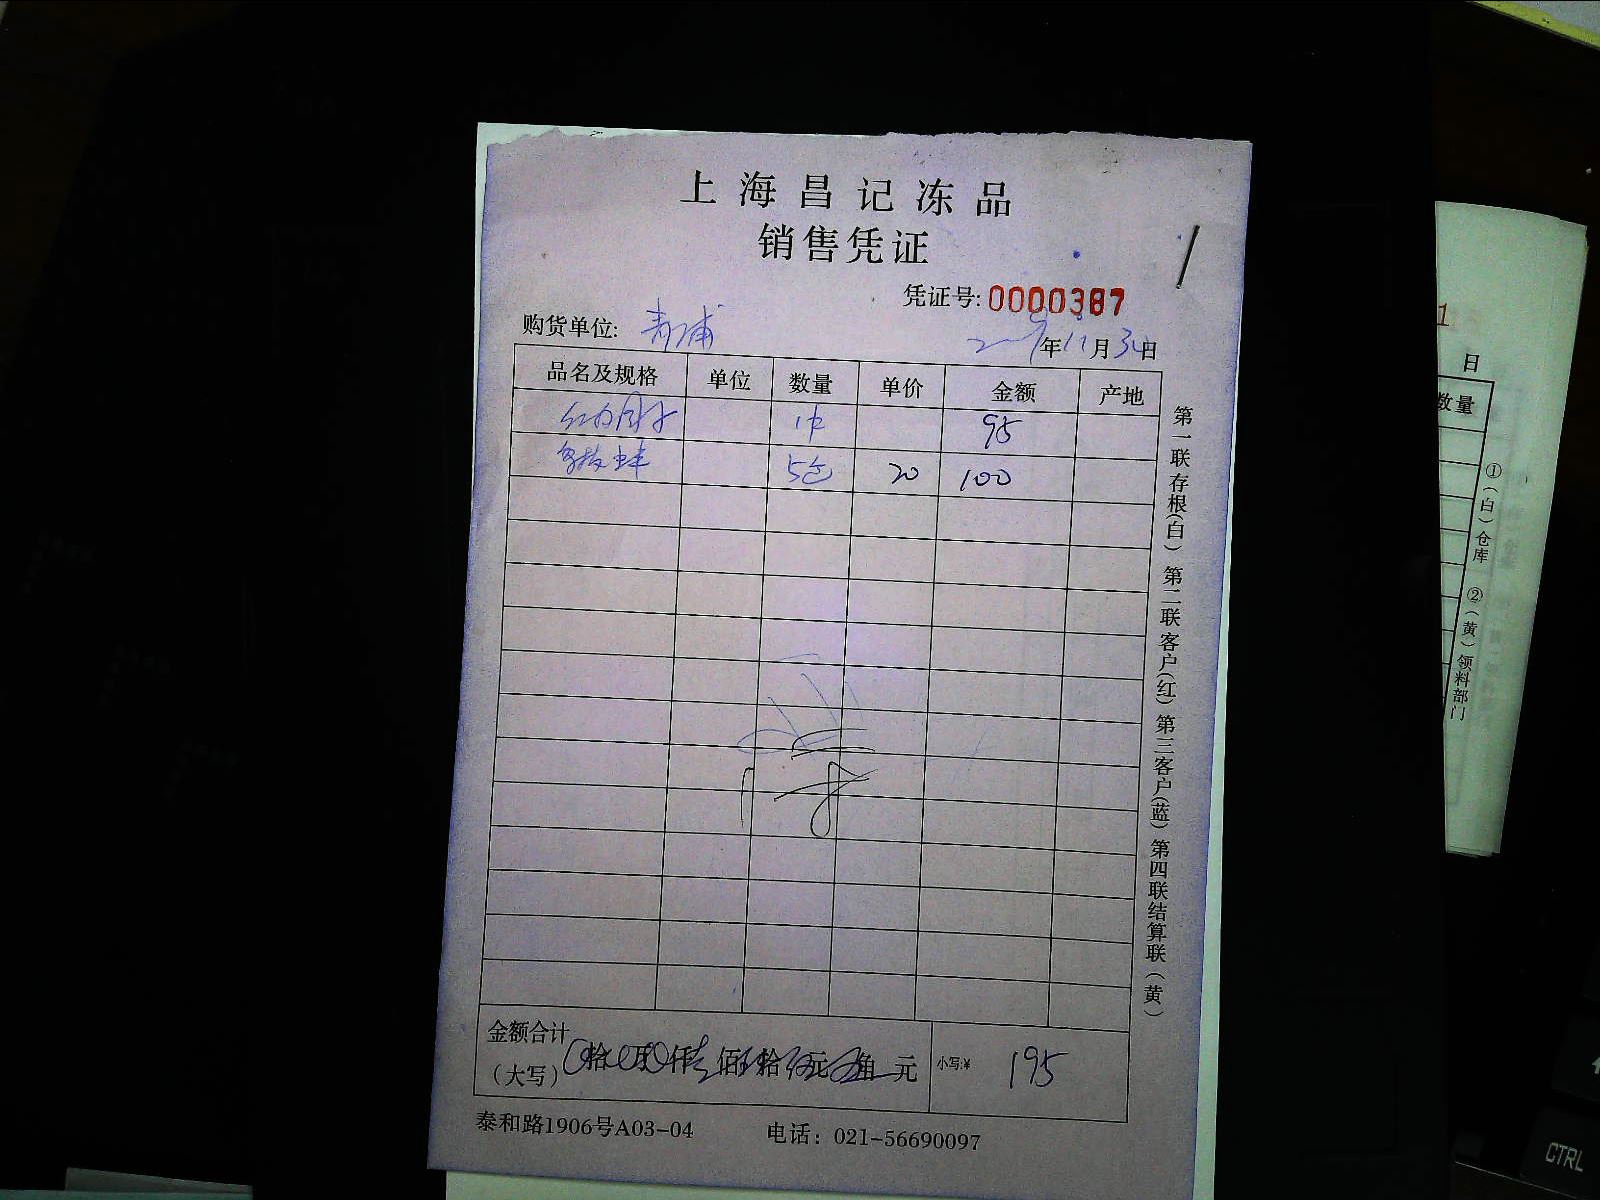 上海昌记冻品
销售凭证
凭证号: 0000387
购货单位: 青浦
年11月30日
品名及规格 单位 数量 单价 金额 产地
1件 95
蚌 5包 20 100
金额合计
（大写） 拾 万 仟 佰 拾 元 角 元 小写:¥ 195
泰和路1906号A03-04 电话：021-56690097
第一联存根(白) 第二联客户(红) 第三客户(蓝) 第四联结算联(黄)
1
日
数量
①(白)仓库 ②(黄)领料部门
CTRL